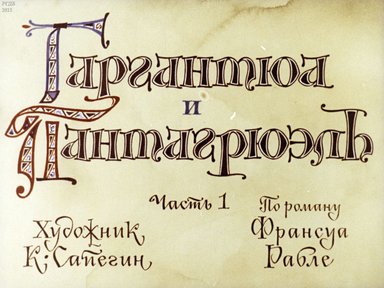 РГДБ
2015
Гаргантюа
и
Пантагрюэль
Часть 1
По роману
Франсуа
Рабле
Художник
К. Сапегин